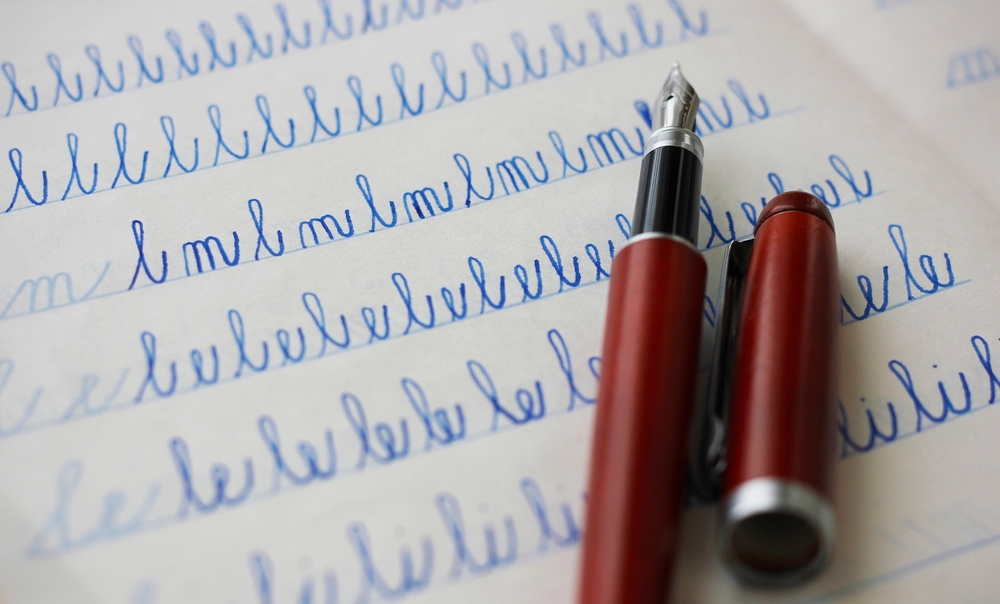 l l l l l l l l l l l l
l l l l l l l l l l l l l l l l
m l m l m l m l m l m l m l
l e l e l e l e l e l e l e l l e l e l
le le le le le le l e le
li li li li li li l